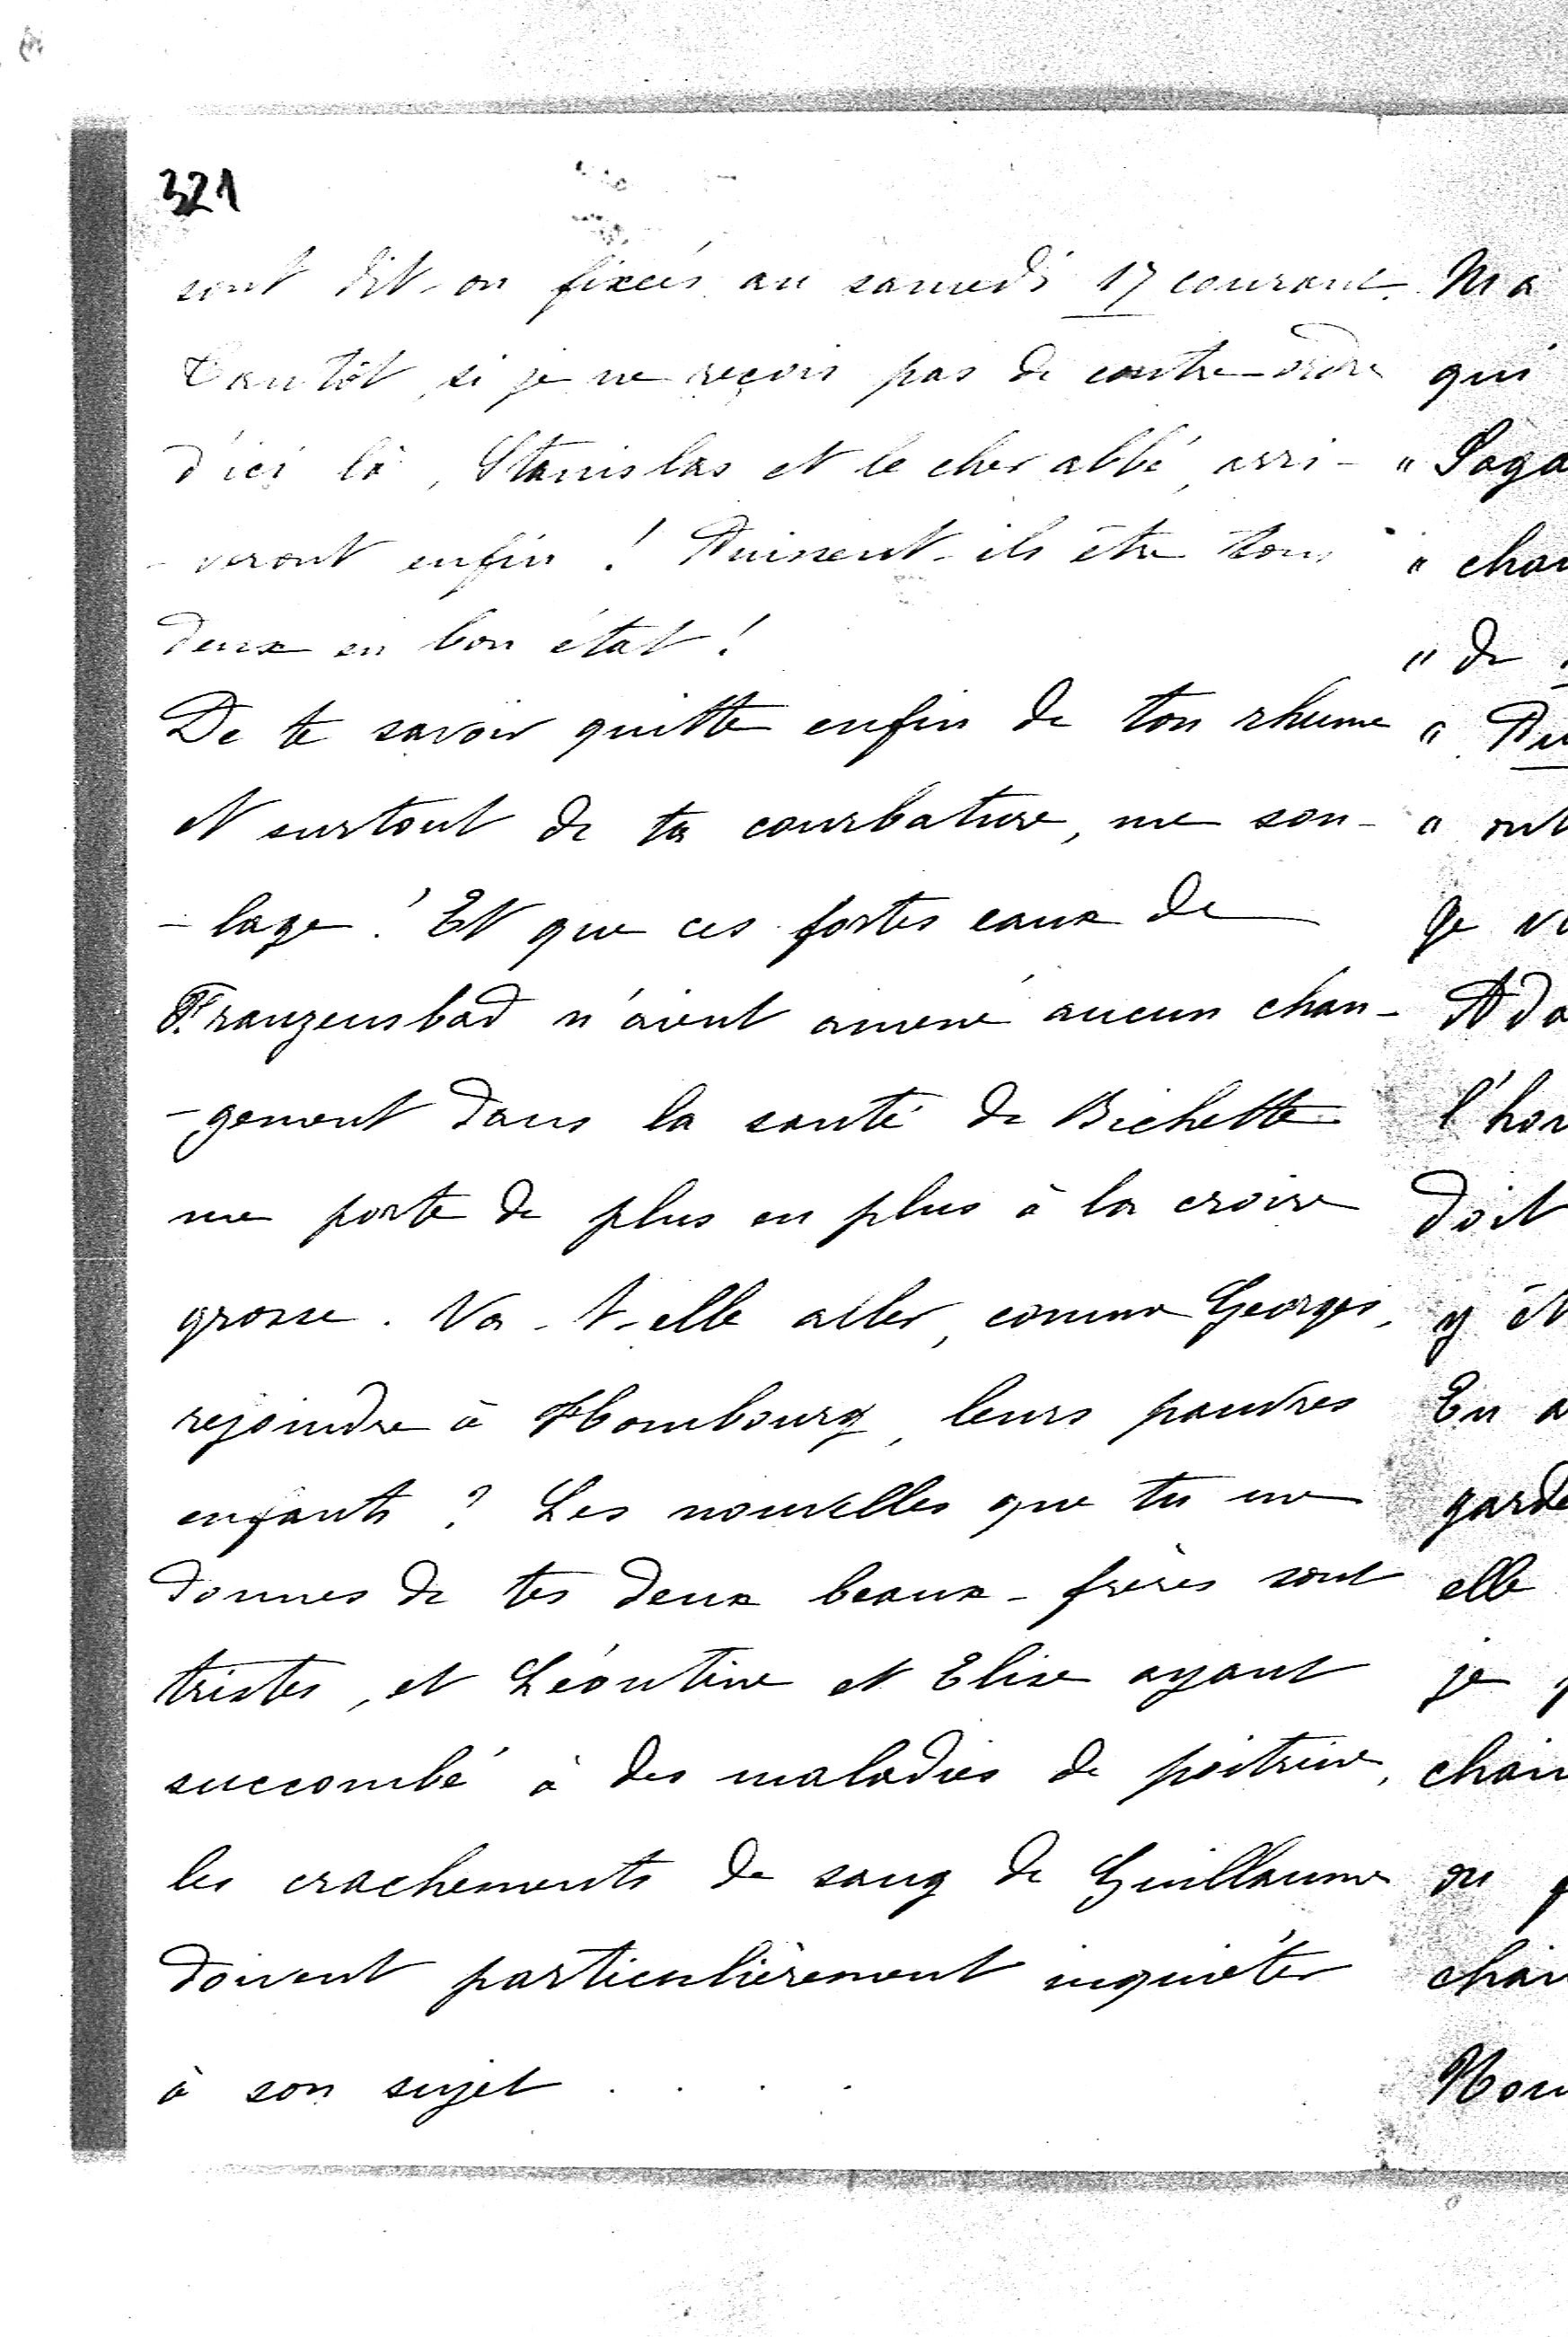 321
sont dit-on fixés au samedi 17 courant.
Tantôt, si je ne reçois pas de contre-ordre
d'ici là, Stanislas et le cher abbé, arri-
-veront enfin ! Puissent-ils être tous
deux en bon état !
De te savoir quitte enfin de ton rhume
et surtout de ta courbature, me sou-
-lage ! Et que ces fortes eaux de
Franzensbad n'aient amené aucun chan-
-gement dans la santé de Bichette
me porte de plus en plus à la croire
grosse. Va-t-elle aller, comme Georges,
rejoindre à Hombourg, leurs pauvres
enfants ? Les nouvelles que tu me
donnes de tes deux beaux-frères sont
tristes, et Léontine et Elise ayant
succombé à des maladies de poitrine,
les crachements de sang de Guillaume
doivent particulièrement inquiéter
à son sujet . . . .
Ma
qui
"
"
" de
"
" ont
Je
l'hon
doit
y
En
garde
elle
je
ou